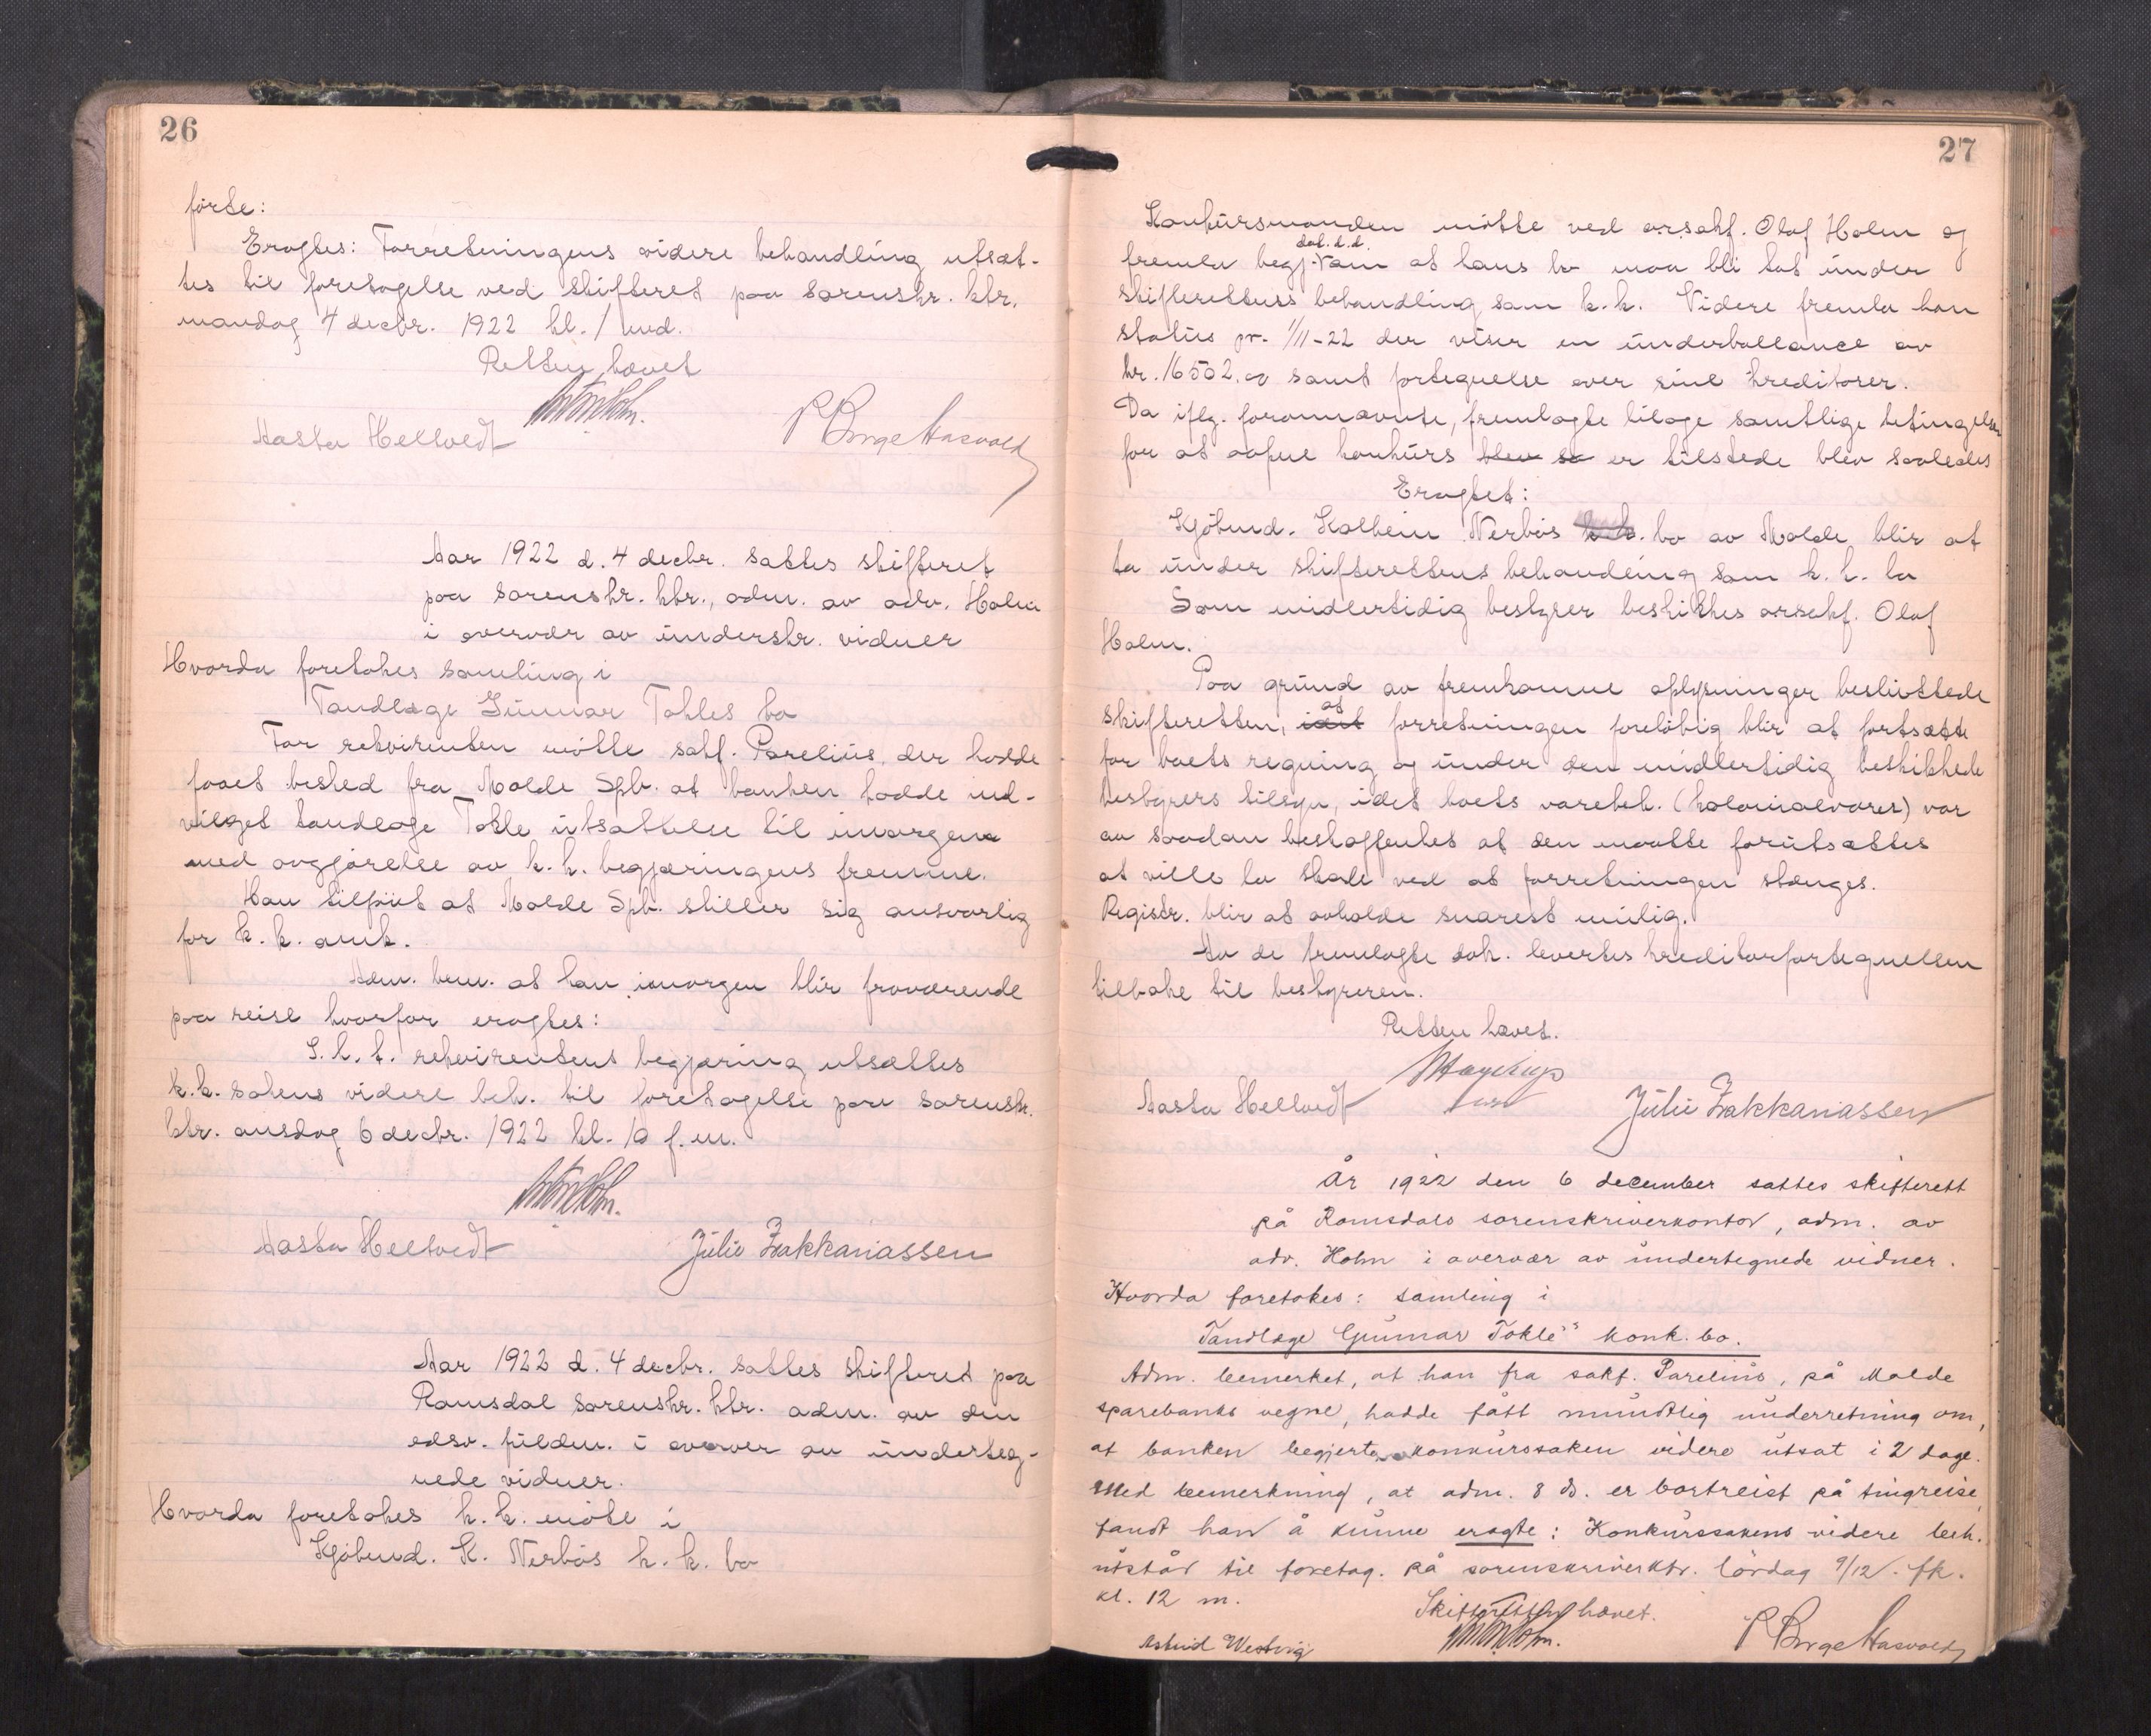 26
förte:
Eragtes: Forretningens videre behandling utsæt-
tes til foretagelse ved skifteret paa sorenskr. ktr.
mandag 4 decbr. 1922 kl. 1 md.
Retten hævet
Aasta Helltvedt
P Borge Hasvold
Aar 1922 d. 4 decbr. sattes skifteret
paa sorenskr. ktr., adm. av adv. Holm
i overvær av underskr. vidner
Hvorda foretokes samling i
Tandlæge Gunnar Tokles bo
For rekvirenten mötte sakf. Parelius, der hadde
faaet beshed fra Molde Spb. at banken hadde ind-
vilget tandlæge Tokle utsættelse til imorgen
med avgjörelse av k.k. begjæringens fremme.
Han tilföiet at Molde Spb. stiller sig ansvarlig
for k.k. omk.
Adm. bem. at han imorgen blir fraværende
paa reise hvorfor eragtes:
I. h. t. rekvirentens begjæring utsættes
k.k. sakens videre beh. til foretagelse paa sorenskr.
ktr. onsdag 6 decbr. 1922 kl. 10 f.m.
Aasta Helltvedt
Julie Zakkariassen
Aar 1922 d. 4 decbr. sattes skifteret paa
Romsdal sorenskr. ktr. adm. av den
edsv. fuldm. i overvær av underteg-
nede vidner.
Hvorda foretokes k.k. möte i
Kjöbmd. K. Nerbös k.k. bo
27
Konkursmanden mötte ved o.r.sakf. Olaf Holm og
dat. d.d.
fremla begj. om at hans bo maa bli tat under
skifterettens behandling som k.k. Videre fremla han
status pr. 1/11-22 der viser en underballance av
kr. 16502.00 samt fortegnelse over sine kreditorer.
Da iflg. forannævnte, fremlagte bilage samtlige betingelser
for at aapne konkurs blev sa er tilstede blev saaledes
Eragtet:
Kjöbmd. Kolbein Nerbös k.k. bo av Molde blir at
ta under skifterettens behandling som k.k. bo
Som midlertidig bestyrer beskikkes o.r.sakf. Olaf
Holm.
Paa grund av fremkomne oplysninger besluttede
at
skifteretten, idet forretningen foreløbig blir at fortsætte
for boets regning og under den midlertidig beskikkede
bestyrers tilsyn, idet boets varebeh. (kolonialvarer) var
av saadan beskaffenhet at den maatte forutsættes
at ville ta skade ved at forretningen stænges.
Registr. blir at avholde snarest mulig.
Av de fremlagte dok. levertes kreditorfortegnelsen
tilbake til bestyreren.
Retten hævet.
Aasta Helltvedt
Julie Zakkariassen
År 1922 den 6 december sattes skifterett
på Romsdals sorenskriverkontor, adm. av
adv. Holm i overvær av undertegnede vidner.
Hvorda foretokes: samling i
Tandlæge Gunnar Tokle's konk. bo.
Adm. bemerket, at han fra sakf. Parelius, på Molde
sparebanks vegne, hadde fått mundtlig underretning om,
at banken begjerte konkurssaken videre utsat i 2 dage.
Med bemerkning, at adm. 8 ds. er bortreist på tingreise,
fandt han å kunne eragte: Konkurssakens videre beh.
utstår til foretag. på sorenskriverktr. lördag 9/12. fk.
kl. 12 m.
Skifteretten hævet.
Astrid Westvig
P Borge Hasvold